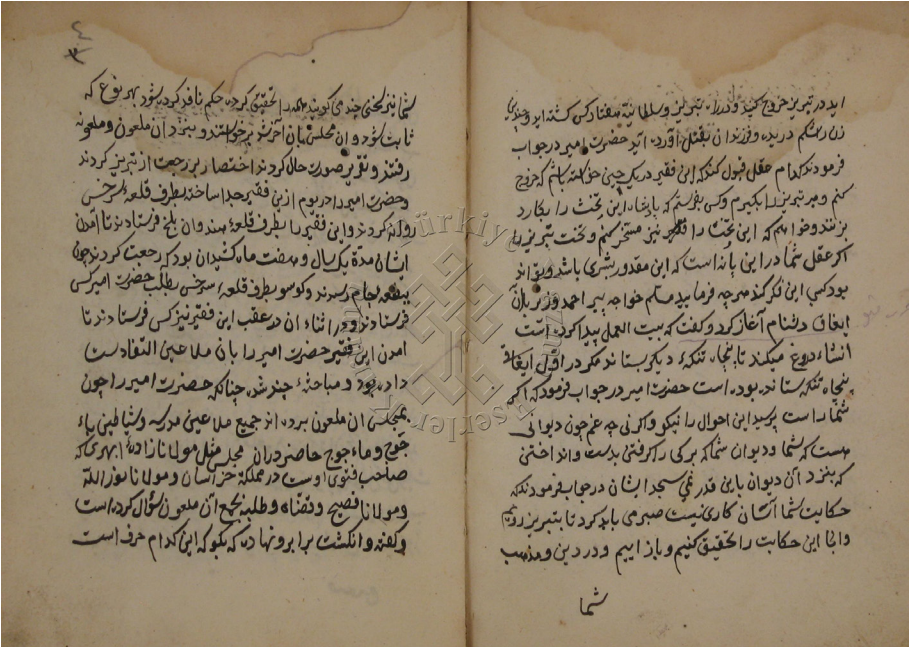 اید در تبریز خروج کنید و در راه تبریز و سلطانیه هفتاد کس کشته اید و چندین
زن را شکم دریده و فرزندان بقتل آورده اید حضرت امیر در جواب
فرمودند کدام عقل قبول کند که این فقیر در یک چنین حالتی باشم که خروج
کنم و میر تبریز را بکیرم و کسی بفرستم که پایهاء این تخت را بکارد
بزنند و خواهم که این تخت را نیز مسخر کنم و تخت تبریز را
اکر عقل شما در این پایه است که این مقدور بشری باشد و تواند
بود کسی این فکر کند هرچه فرمایید مسلم خواجه پیر احمد وزیر بان
ایغاق دشنام آغاز کرد و گفت که بیت العمل پیدا کرده است
انشاء دروغ میکند تا پنجاه تنکهء دیکر بستاند مکر در اول ایغاقی
پنجاه تنکه ستانده بوده است حضرت امیر در جواب فرمود که اکر
شما راست پرسید این احوال را نیکو و اکر نی چه غم چون دیوانی
هست که شما و دیوان شما که برکی را کرفتن بدست و انداختن
که بنزد آن دیوان باین قدر نمی سنجد ایشان در جواب فرمودند که
حکایت شما آسان کاری نیست صبر می باید کرد تا بتبریز رویم
و آنجا این حکایت را تحقیق کنیم و باز آییم و در دین و مذهب
شما
٤
٣
شما نیز سخنی چند می کویند همه را تحقیق کرده حکم نافذ کرده شود بهر نوع که
ثابت شود و ان مجلس بان آخر شد برخواستند و بنزد ان ملعون و ملعونه
رفتند و تقریر صورت حال کردند اختصار بر رجعت از تبریز کردند
و حضرت امیر را در بوم از ین فقیر جدا ساخته بطرف قلعهء سرخس
روانه کردند و این فقیر را بطرف قلعهء هندوان بلخ فرستادند تا آمدن
ایشان مدة یک سال و هفت ماه کشیدان بود که رجعت کردند چون
بقصبه جام رسیدند و کوسو بطرف قلعهء سرخس بطلب حضرت امیر کس
فرستادند و در اثناء ان در عقب این فقیر نیز کسی فرستادند تا
امدن این فقیر حضرت امیر را بان ملاعین التقا دست
داده بود و مباحثهء چند شده چنانکه حضرت امیر را چون
بمجلس ان ملعون برده اند جمیع ملاعین مدرسه و شیاطین یاء
جوج و ماء جوج حاضر دران مجلس مثل مولانا زادهء ابهری که
صاحب فتوی اوست در مملکة خراسان و مولانا نور الله
و مولانا فصیح و قضاة و طلبه بجمع آن ملعون سؤال کرده است
و کفته و انکشت برابرو نهاده که بکو که این کدام حرف است
Türkiye